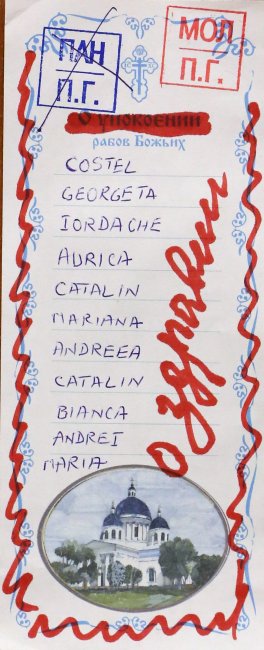 ПАН
П.Г.
МОЛ
П.Г.
О упокоении
рабов Божьих
COSTEL
GEORGETA
IORDACHE
AURICA
CATALIN
MARIANA
ANDREEA
CATALIN
BIANCA
ANDREI
MARIA
О здравии